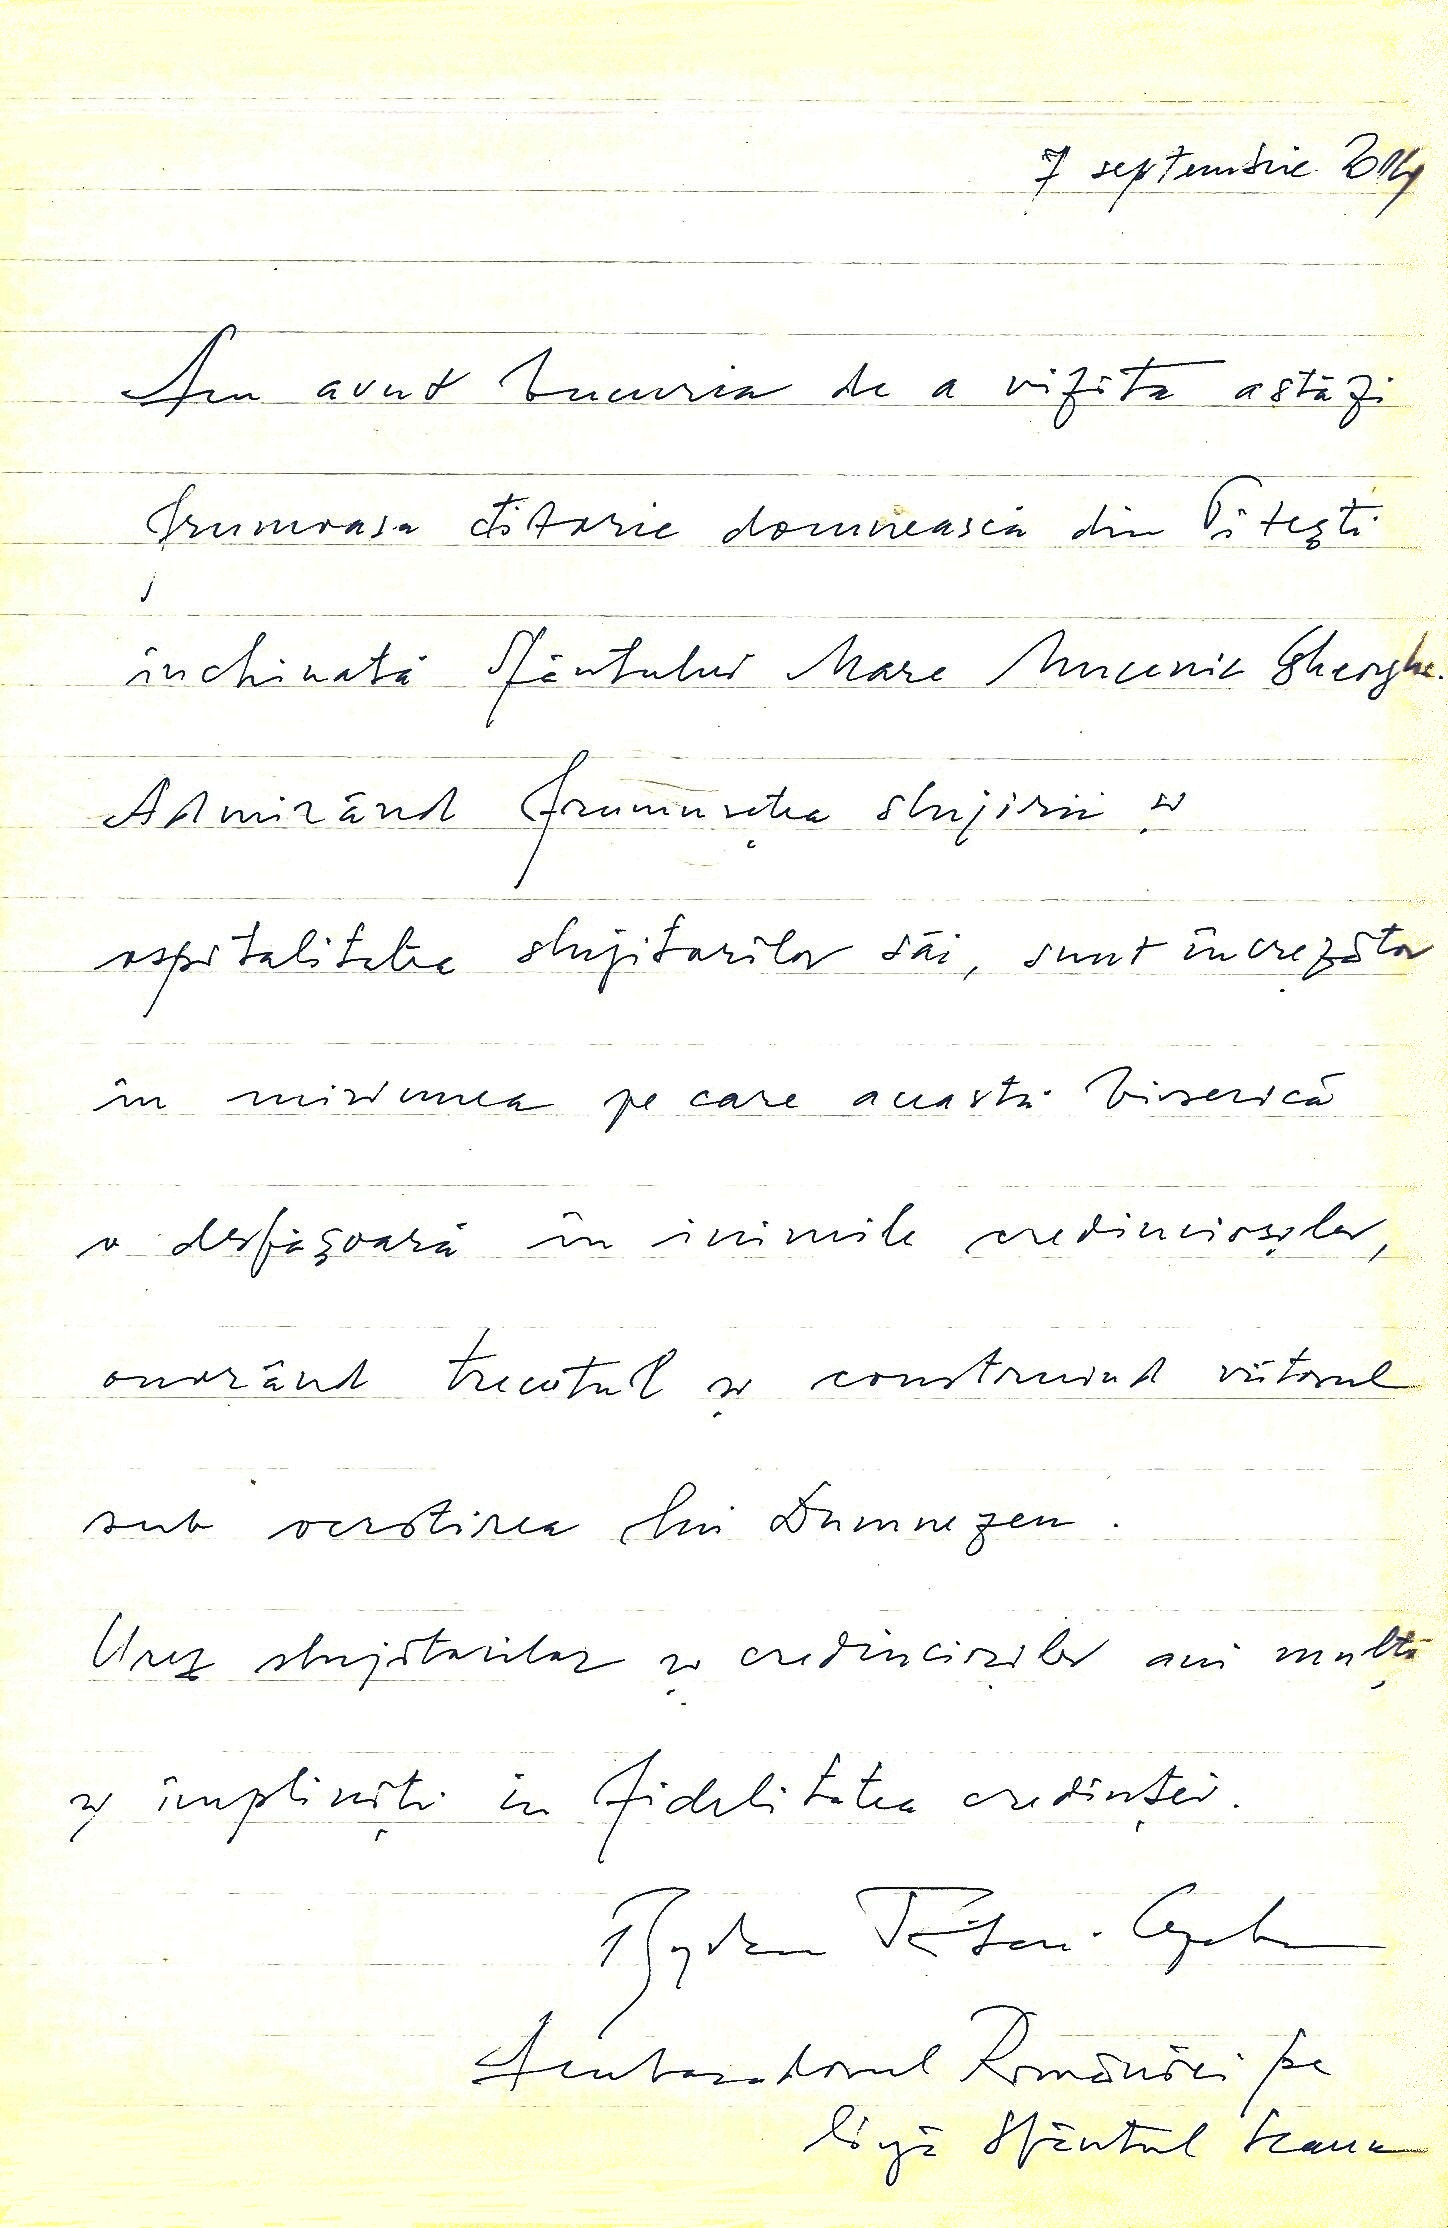 7 septembrie 2014
Am avut bucuria de a vizita astăzi
frumoasa ctitorie domnească din Pitești
închinată Sfântului Mare Mucenic Gheorghe.
Admirând frumusețea slujirii și
ospitalitatea slujitorilor săi, sunt încrezător
în misiunea pe care această biserică
o desfășoară în inimile credincioșilor,
onorând trecutul și construind viitorul
sub ocrotirea lui Dumnezeu.
Urez slujitorilor și credincioșilor ani mulți
și împliniți în fidelitatea credinței.
Bogdan Tătaru-Cazaban
Ambasadorul României pe
lângă Sfântul Scaun